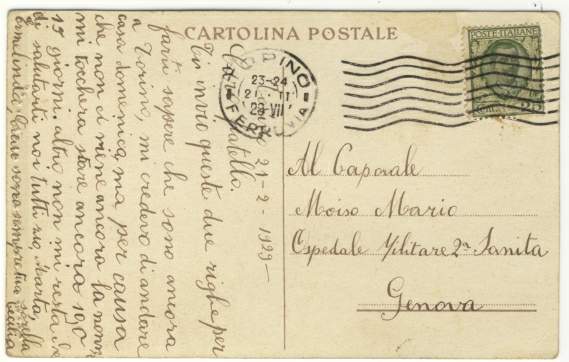 CARTOLINA POSTALE
POSTE ITALIANE
TORINO
23-24
21 · II
29 · VII
FERROVIA
21-2-1929-
Caro fratello.
Ti invio queste due righe per
farti sapere che sono ancora
a Torino, mi credevo di andare
casa domenica ma per causa
che non ci viene ancora la nonna
mi tocchera stare ancora 10 o
15 giorni. altro non mi resta che
di salutarti noi tutti zio, Marta,
Ermelinda, Ciao sono sempre tua sorella
Cecilia
Al Caporale
Moiso Mario
Ospedale Militare 2ª Sanita
Genova